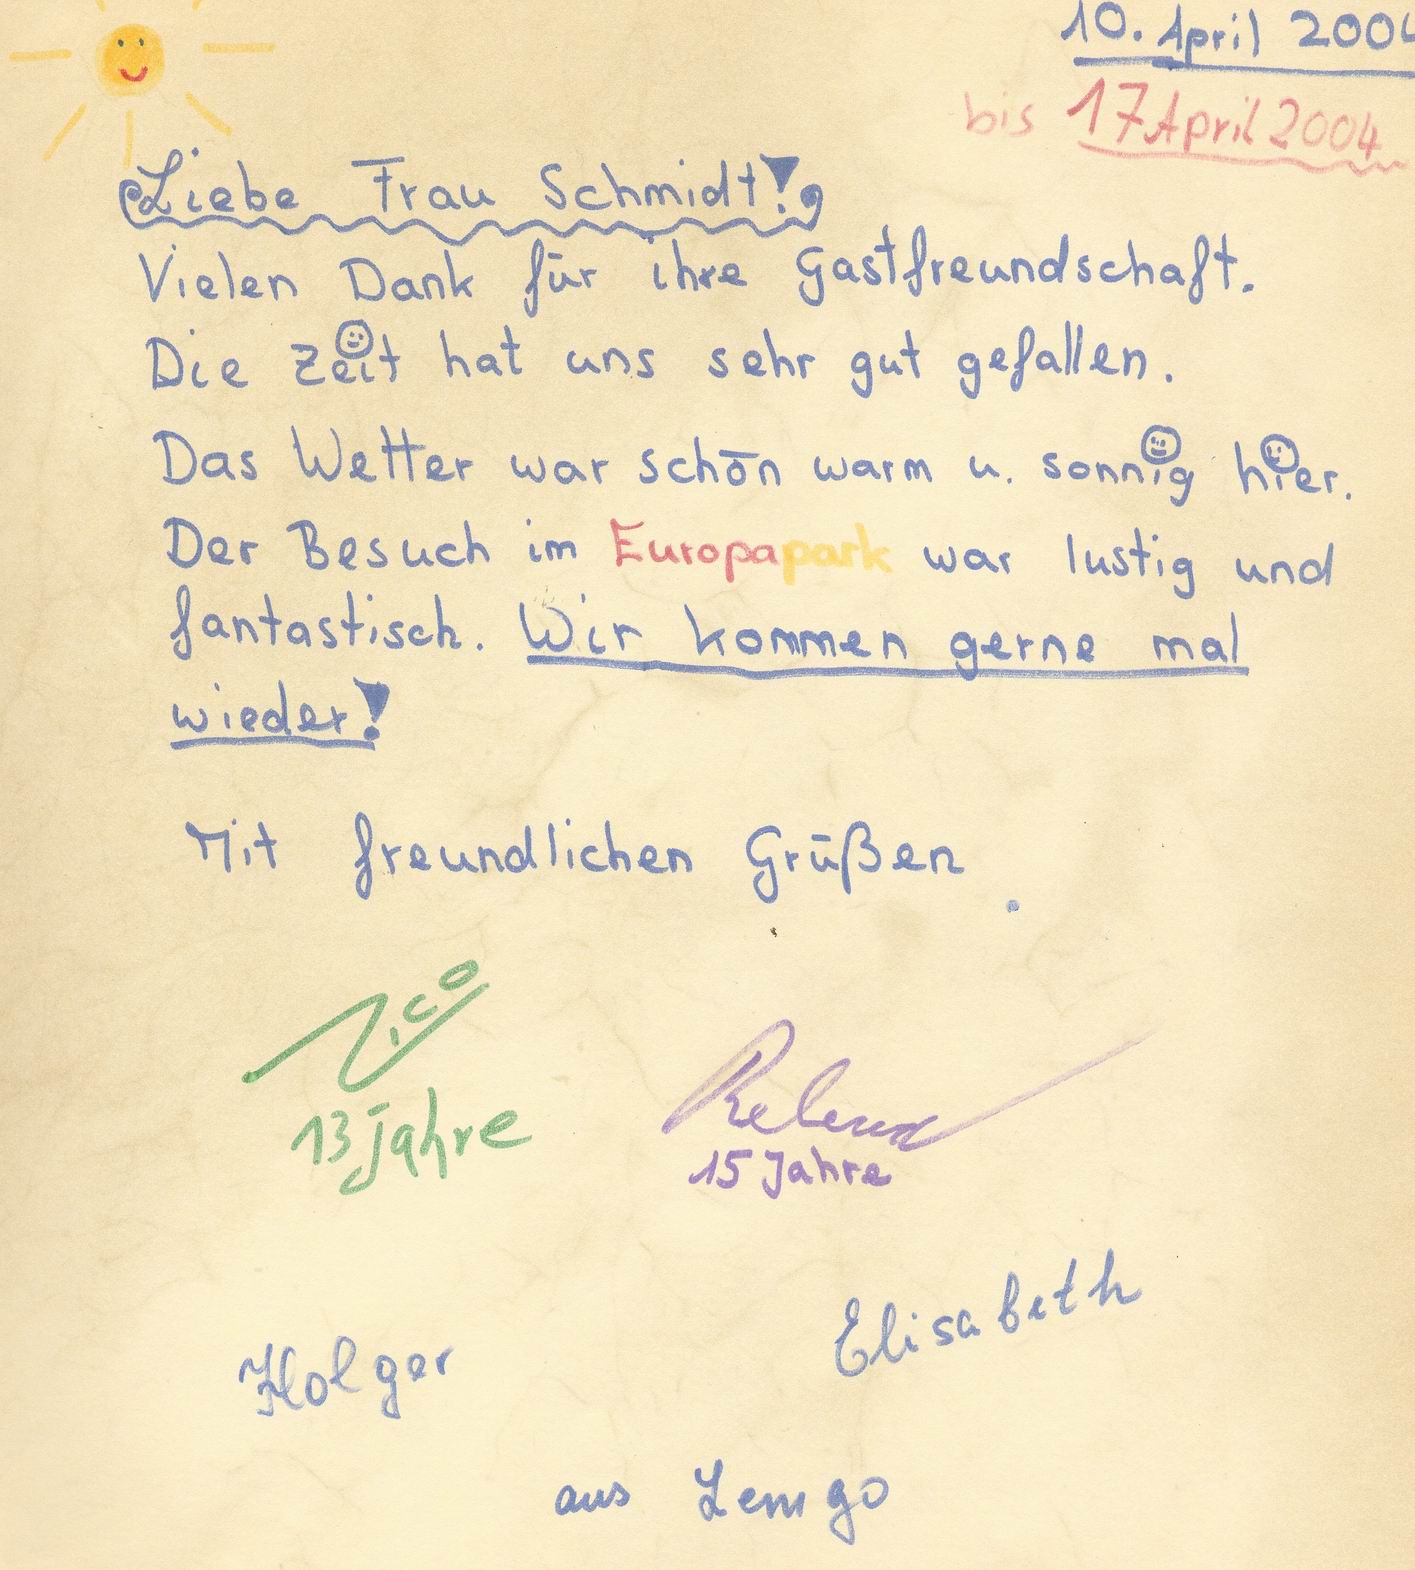 10. April 2004
bis 17 April 2004
Liebe Frau Schmidt!
Vielen Dank für ihre Gastfreundschaft.
Die Zeit hat uns sehr gut gefallen.
Das Wetter war schön warm u. sonnig hier.
Der Besuch im Europapark war lustig und
fantastisch. Wir kommen gerne mal
wieder!
Mit freundlichen Grüßen.
Nico
13 Jahre
15 Jahre
Elisabeth
Holger
aus Lemgo